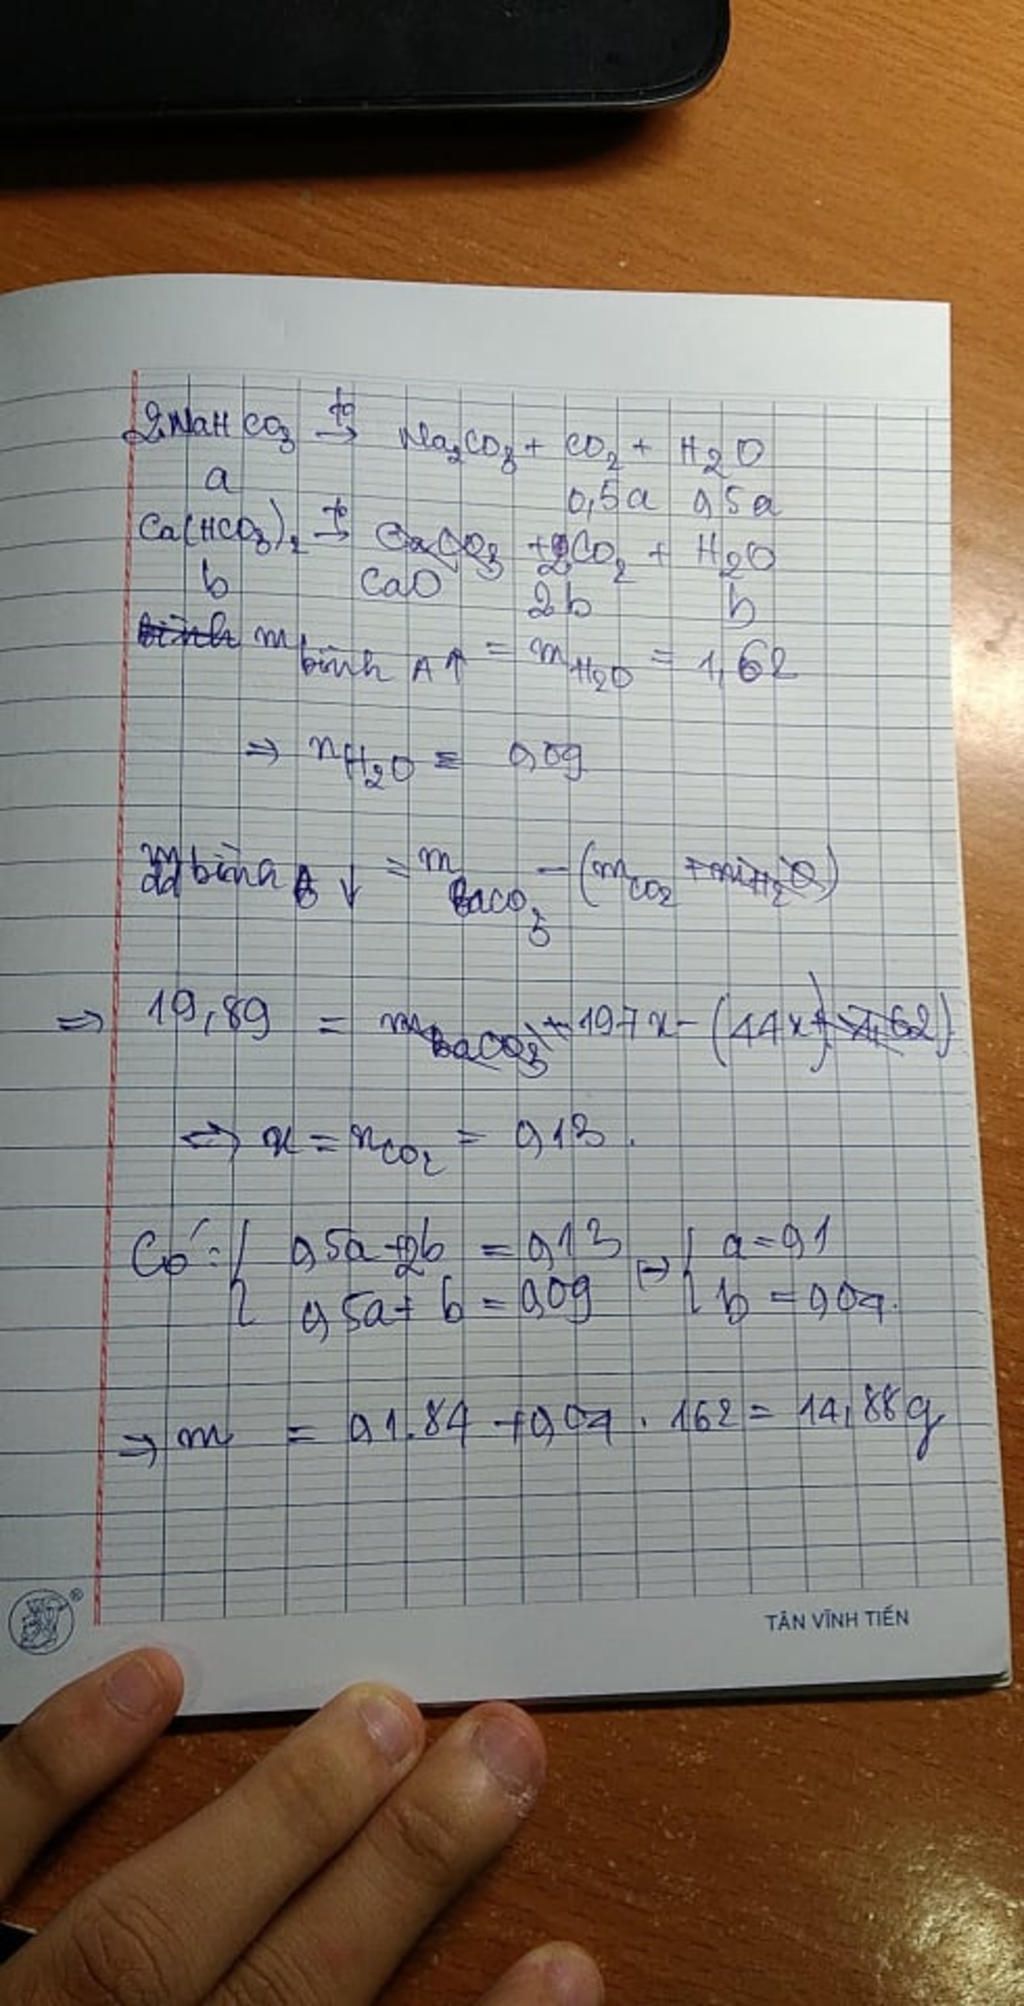 2NaHCO3 →tº Na2CO3 + CO2 + H2O
a 0,5a 0,5a
Ca(HCO3)2 →tº CaCO3 +2CO2 + H2O
b CaO 2b b
bình m bình A↑ = mH2O = 1,62
⇒ nH2O = 0,09
m dd bình B↓ = mBaCO3 - (mCO2 + mH2O)
⇒ 19,89 = mBaCO3 + 197x - (44x) + 1,62)
⇔ x = nCO2 = 0,13.
Có: { 0,5a + 2b = 0,13 ⇔ { a = 0,1
0,5a + b = 0,09 b = 0,04.
⇒ m = 0,1.84 + 0,04 . 162 = 14,88g
®
TÂN VĨNH TIẾN